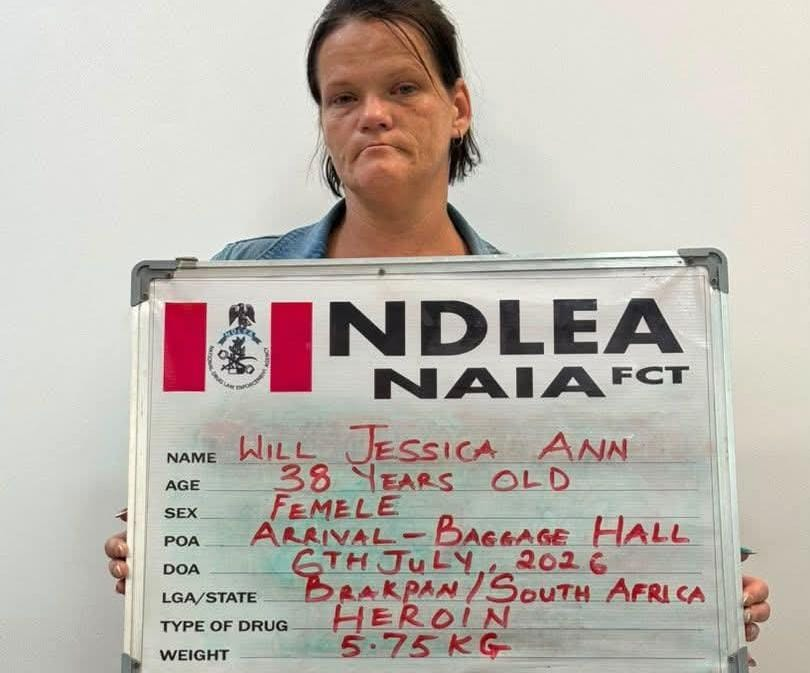 NDLEA
NATIONAL DRUG LAW ENFORCEMENT AGENCY
NDLEA
NAIA FCT
NAME WILL JESSICA ANN
AGE 38 YEARS OLD
SEX FEMELE
POA ARRIVAL - BAGGAGE HALL
DOA 6TH JULY, 2026
LGA/STATE BRAKPAN/SOUTH AFRICA
TYPE OF DRUG HEROIN
WEIGHT 5.75KG